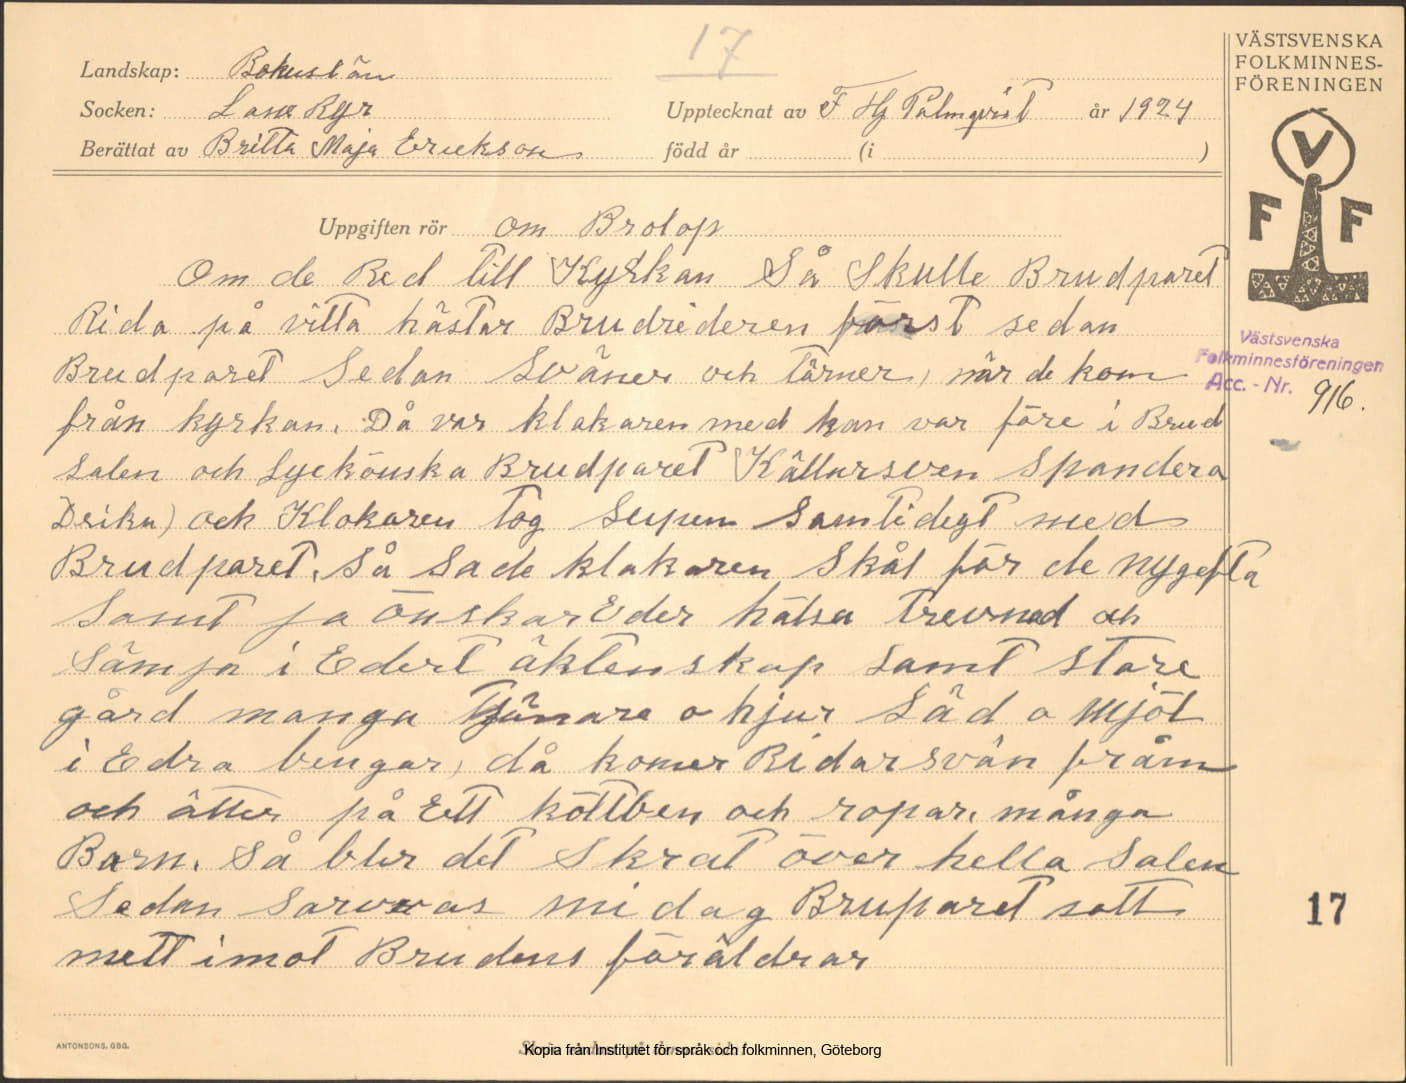 17
VÄSTSVENSKA
FOLKMINNES-
FÖRENINGEN
Landskap: Bohuslän
Socken: Lane Ryr
Upptecknat av F Hj Palmqvist år 1924
Berättat av Britta Maja Erickson
född år (i )
V
F F
Uppgiften rör om Brolop
Om de Red till Kyrkan Så Skulle Brudparet
Rida på vitta hästar Brudrideren först sedan
Brudparet Sedan Sväner och tärner, när de kom
från kyrkan. Då var klakaren med han var före i Brud
salen och Lyckönska Brudparet Källarsven Spandera
Drika) och Klokaren tog Supen Samtidegt med
Brudparet. Så Sade klakaren Skål för de nygefta
Samt ja Önskar Eder hälsa trevnad och
Sämja i Edert äktenskap Samt Store
gård manga Tjänare o hjur Säd o Mjöl
i Edra bengar, då komer Ridarsvän fråm
och åtter på Ett köttben och ropar. många
Barn. Så bler det Skrat över hella Salen
Sedan Sarvras midag Bruparet satt
mett imot Brudens föräldrar
Västsvenska
Folkminnesföreningen
Acc. - Nr. 916.
17
ANTONSONS, GBG.
Kopia från Institutet för språk och folkminnen, Göteborg